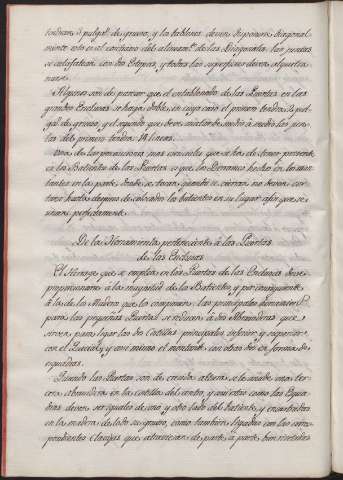 tendran 3 pulgs. de grueso, y los tablones deven disponerse diagonal-
mente esto es al contrario del alineamto. de las Diagonales, las juntas
se calafatean con dos Estopas y todas las superficies deven alquitra-
narse.
Algunos son de parecer que el entablonado de las Puertas en las
grandes Esclusas se haga doble, en cuyo caso el primero tendra 2 pul-
gs. de grueso, y el segundo que deve cubrir de medio à medio las jun-
tas del primero tendra 18 lineas.
Una de las precauciones mas esenciales que se han de tener presente
en los Batientes de las Puertas es que los Derrames hechos en los mon-
tantes en la parte donde se tocan quando se cierran no deven cor-
tarse hasta despues de colocados los batientes en su lugar afin que se
unan perfectamente.
De la Herramienta perteneciente à las Puertas
de las Esclusas
El Herrage que se emplea en las Puertas de las Esclusas deve
proporcionarse à la magnitud de los Batientes, y por consiguiente
à la de la Madera que lo componen: las principales dimensiones
para las pequeñas Puertas se reducen à dos Abrazaderas que
sirven para ligar los dos Costillas principales inferior y superior
con el Quicial, y asi mismo el montante con otras dos en forma de
esquadras.
Quando las Puertas son de crecida altura se le añade una ter-
cera abrazadera en la costilla del centro, y assi estas como las Esqua-
dras deven ser iguales de uno y otro lado del batiente, y encastradas
en la madera de todo su grueso, como tambien ligadas con los corres-
pondientes clavijas que atraviesan de parte, à parte bien revitados